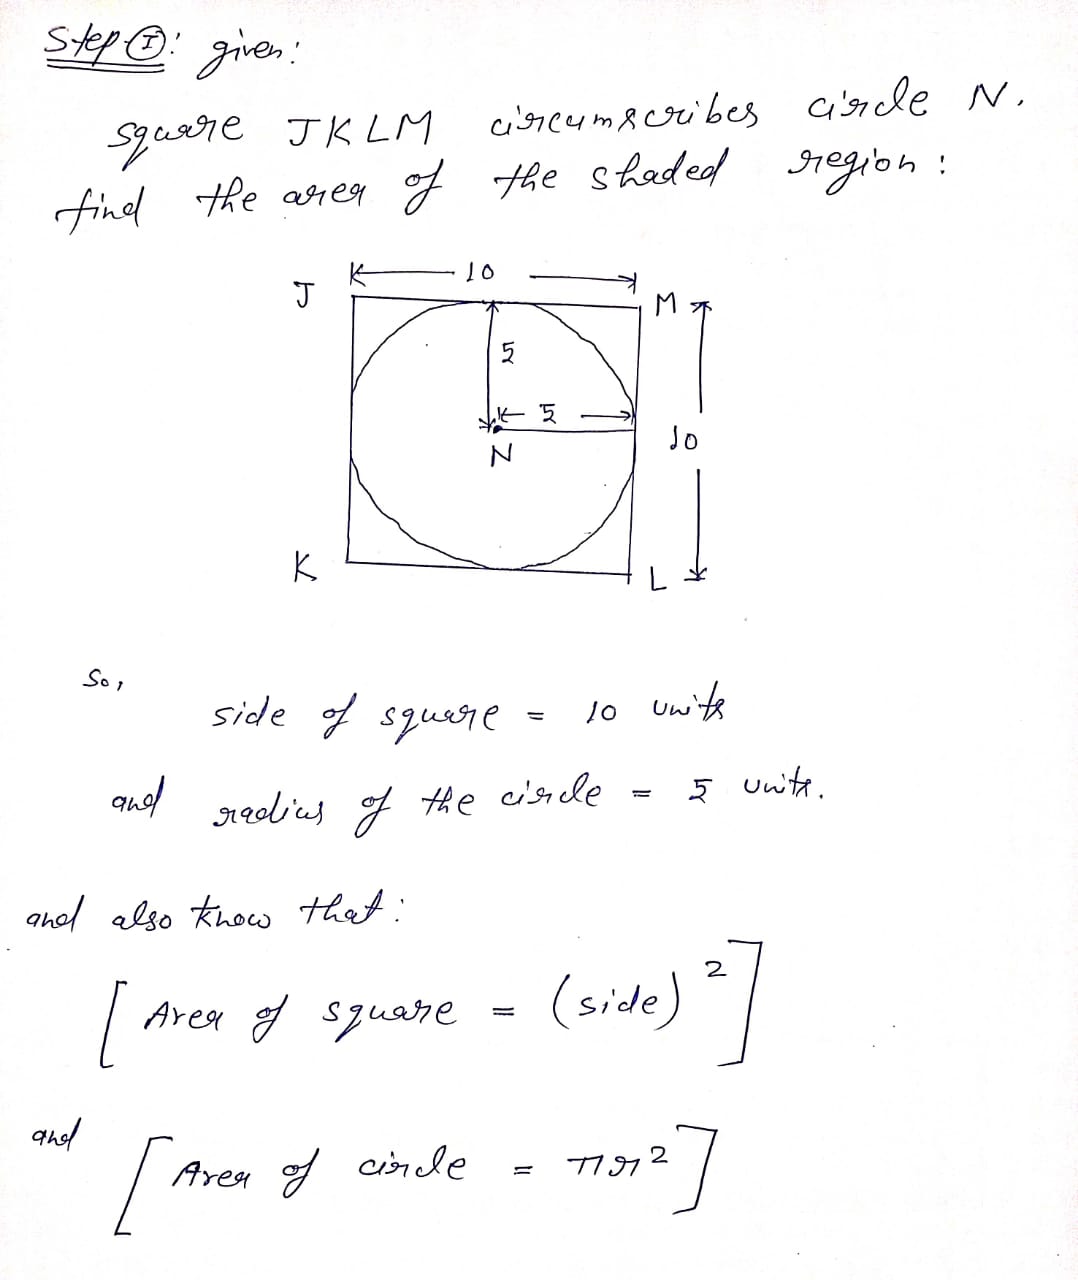 Step-I: given:
square JKLM circumscribes circle N.
find the area of the shaded region:
10
J
M
5
5
N
10
K
L
So,
side of square = 10 units
and radius of the circle = 5 units.
and also know that:
[Area of square = (side)²]
and
[Area of circle = πr²]